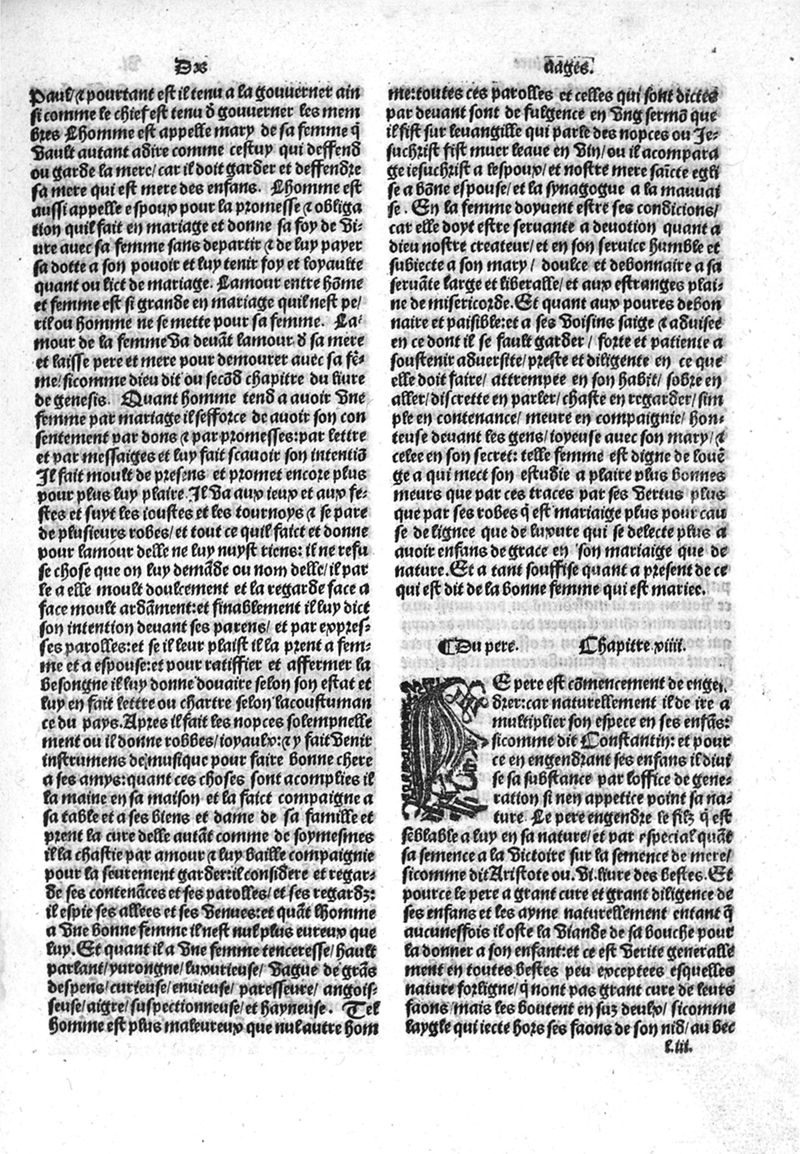 Des
aages.
Paul/ ⁊ pourtant est il tenu a la gouuerner ain
si comme le chief est tenu d̄ gouuerner les mem
bres Lhomme est appelle mary de sa femme q̄
vault autant adire comme cestuy qui deffend
ou garde la mere/ car il doit garder et deffendre
sa mere qui est mere des enfans. Lhomme est
aussi appelle espoux pour la promesse ⁊ obliga
tion quil fait en mariage et donne sa foy de vi-
ure auec sa femme sans departir ⁊ de luy payer
sa dotte a son pouoir et luy tenir foy et loyaulte
quant ou lict de mariage. Lamour entre hōme
et femme est si grande en mariage quil nest pe/
ril ou homme ne se mette pour sa femme. La-
mour de la femme va deuāt lamour d̄ sa mere
et laisse pere et mere pour demourer auec sa fē-
me/ sicomme dieu dit ou secōd chapitre du liure
de genesis. Quant homme tend a auoir vne
femme par mariage il sefforce de auoir son con
sentement par dons ⁊ par promesses: par lettre
et par messaiges et luy fait scauoir son intentiō
Il fait moult de presens et promet encore plus
pour plus luy plaire. Il va aux ieux et aux fe-
stes et suyt les ioustes et les tournoys ⁊ se pare
de plusieurs robes/ et tout ce quil faict et donne
pour lamour delle ne luy nuyst riens: il ne refu
se chose que on luy demāde ou nom delle/ il par
le a elle moult doulcement et la regarde face a
face moult ardāment: et finablement il luy dict
son intention deuant ses parens/ et par expres-
ses parolles: et se il leur plaist il la prent a fem-
me et a espouse: et pour ratiffier et affermer la
besongne il luy donne douaire selon son estat et
luy en fait lettre ou chartre selon lacoustuman
ce du pays. Apres il fait les nopces solempnelle
ment ou il donne robbes/ ioyaulx: ⁊ y fait venir
instrumens de musique pour faire bonne chere
a ses amys: quant ces choses sont acomplies il
la maine en sa maison et la faict compaigne a
sa table et a ses biens et dame de sa famille et
prent la cure delle autāt comme de soymesmes
il la chastie par amour ⁊ luy baille compaignie
pour la seurement garder: il considere et regar-
de ses contenāces et ses parolles/ et ses regardz:
il espie ses allees et ses venues: et quāt lhomme
a vne bonne femme il nest nul plus eureux que
luy. Et quant il a vne femme tenceresse/ hault
parlant/ yurongne/ luxurieuse/ vague de grās
despens/ curieuse/ enuieuse/ paresseuse/ angois-
seuse/ aigre/ suspectionneuse/ et hayneuse. Tel
homme est plus maleureux que nul autre hom
me: toutes ces parolles et celles qui sont dictes
par deuant sont de fulgence en vng sermō que
il fist sur leuangille qui parle des nopces ou Je-
suchrist fist muer leaue en vin/ ou il acompara
ge iesuchrist a lespoux/ et nostre mere saīcte egli
se a bōne espouse/ et la synagogue a la mauuai
se. En la femme doyuent estre ses condicions/
car elle doyt estre seruante a deuotion quant a
dieu nostre createur/ et en son seruice humble et
subiecte a son mary/ doulce et debonnaire a sa
seruāte large et liberalle/ et aux estranges plai-
ne de misericorde. Et quant aux poures debon
naire et paisible: et a ses voisins saige ⁊ aduisee
en ce dont il se fault garder/ forte et patiente a
soustenir aduersite/ preste et diligente en ce que
elle doit faire/ attrempee en son habit/ sobre en
aller/ discrette en parler/ chaste en regarder/ sim
ple en contenance/ meure en compaignie/ hon-
teuse deuant les gens/ ioyeuse auec son mary/ ⁊
celee en son secret: telle femme est digne de louē
ge a qui mect son estudie a plaire plus bonnes
meurs que par ces traces par ses vertus plus
que par ses robes q̄ est mariaige plus pour cau
se de lignee que de luxure qui se delecte plus a
auoir enfans de grace en son mariaige que de
nature. Et a tant souffise quant a present de ce
qui est dit de la bonne femme qui est mariee.
¶Du pere. Chapitre viiii.
LE pere est cōmencement de engen
drer: car naturellement il desire a
multiplier son espece en ses enfās:
sicomme dit Constantin: et pour
ce en engendrant ses enfans il diui
se sa substance par loffice de gene-
ration si nen appetice point sa na-
ture. Le pere engendre le filz q̄ est
sēblable a luy en sa nature/ et par especial quāt
sa semence a la victoire sur la semence de mere/
sicomme dit Aristote ou. vi. liure des bestes. Et
pource le pere a grant cure et grant diligence de
ses enfans et les ayme naturellement entant q̄
aucuneffois il oste la viande de sa bouche pour
la donner a son enfant: et ce est verite generalle
ment en toutes bestes peu exceptees esquelles
nature forligne/ q̄ nont pas grant cure de leurs
faons/ mais les boutent en suz deulx/ sicomme
laygle qui iecte hors ses faons de son nid/ au bec
l.iii.